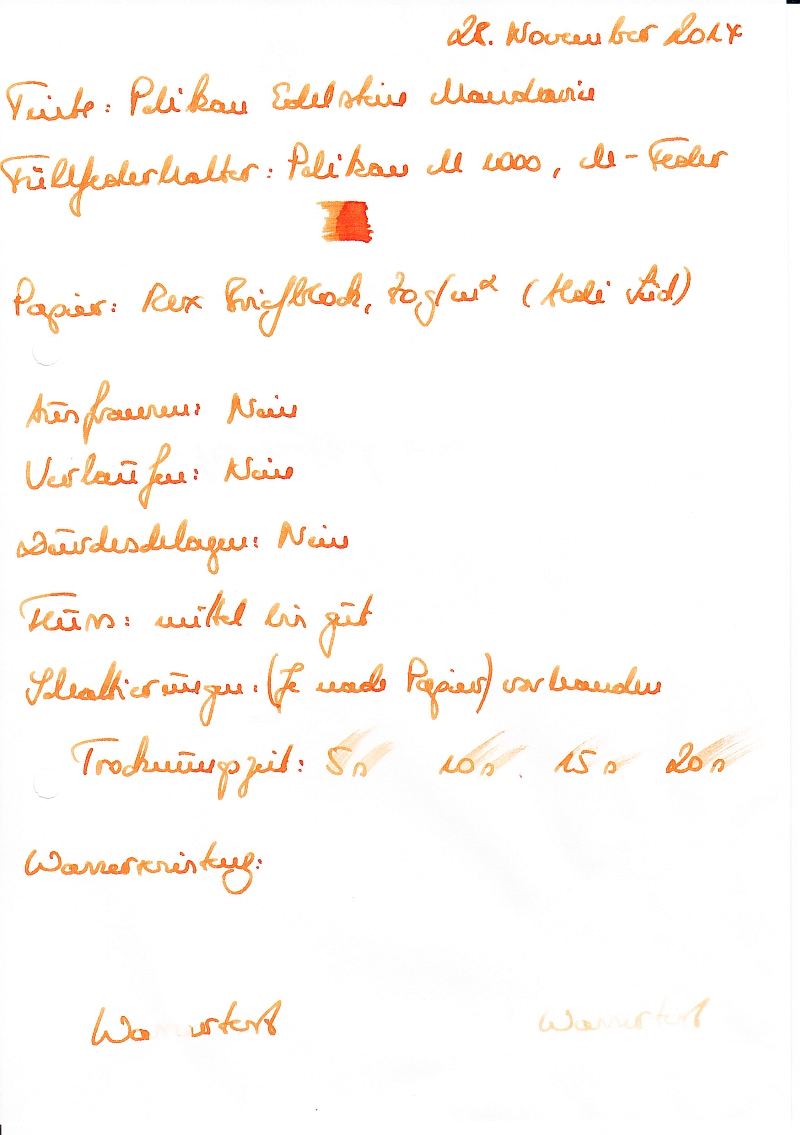 28. November 2014
Tinte: Pelikan Edelstein Mandarin
Füllfederhalter: Pelikan M 1000, M-Feder
Papier: Rex Briefblock, 70g/m² (Aldi Süd)
Ausfransen: Nein
Verlaufen: Nein
Durchschlagen: Nein
Fluss: mittel bis gut
Schattierungen: (Je nach Papier) vorhanden
Trocknungszeit: 5s 10s 15s 20s
Wasserresistenz:
Wassertest Wassertest